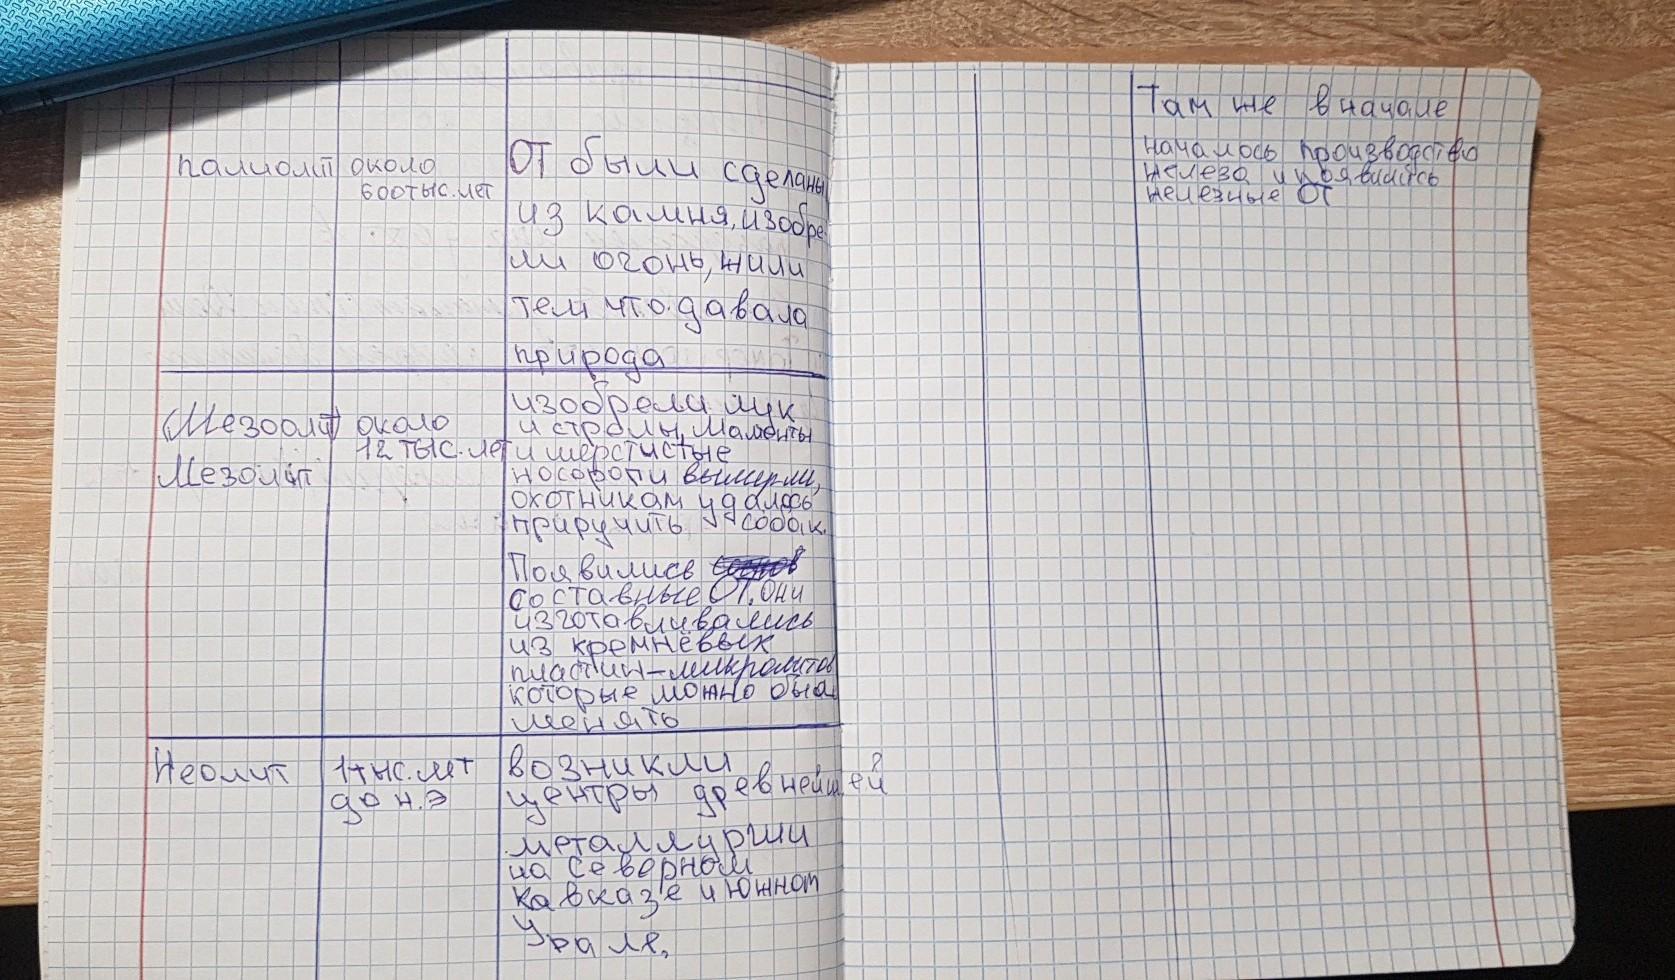 палиолит около
600тыс.лет
ОТ были сделаны
из камня, изобре
ли огонь, жили
тем что давала
природа
(Мезоолит) около
12 тыс.лет
Мезолит
изобрели лук
и стрелы, Мамонты
и шерстистые
носороги вымерли,
охотникам удалось
приручить собак.
Появились
составные ОТ, они
изготавливались
из кремнёвых
пластин-микролитов
которые можно было
менять
Неолит 1тыс.лет
до н.э
возникли
центры древнейшей
металлургии
на северном
кавказе и южном
Урале,
Там же в начале
началось производство
железа и появились
железные ОТ